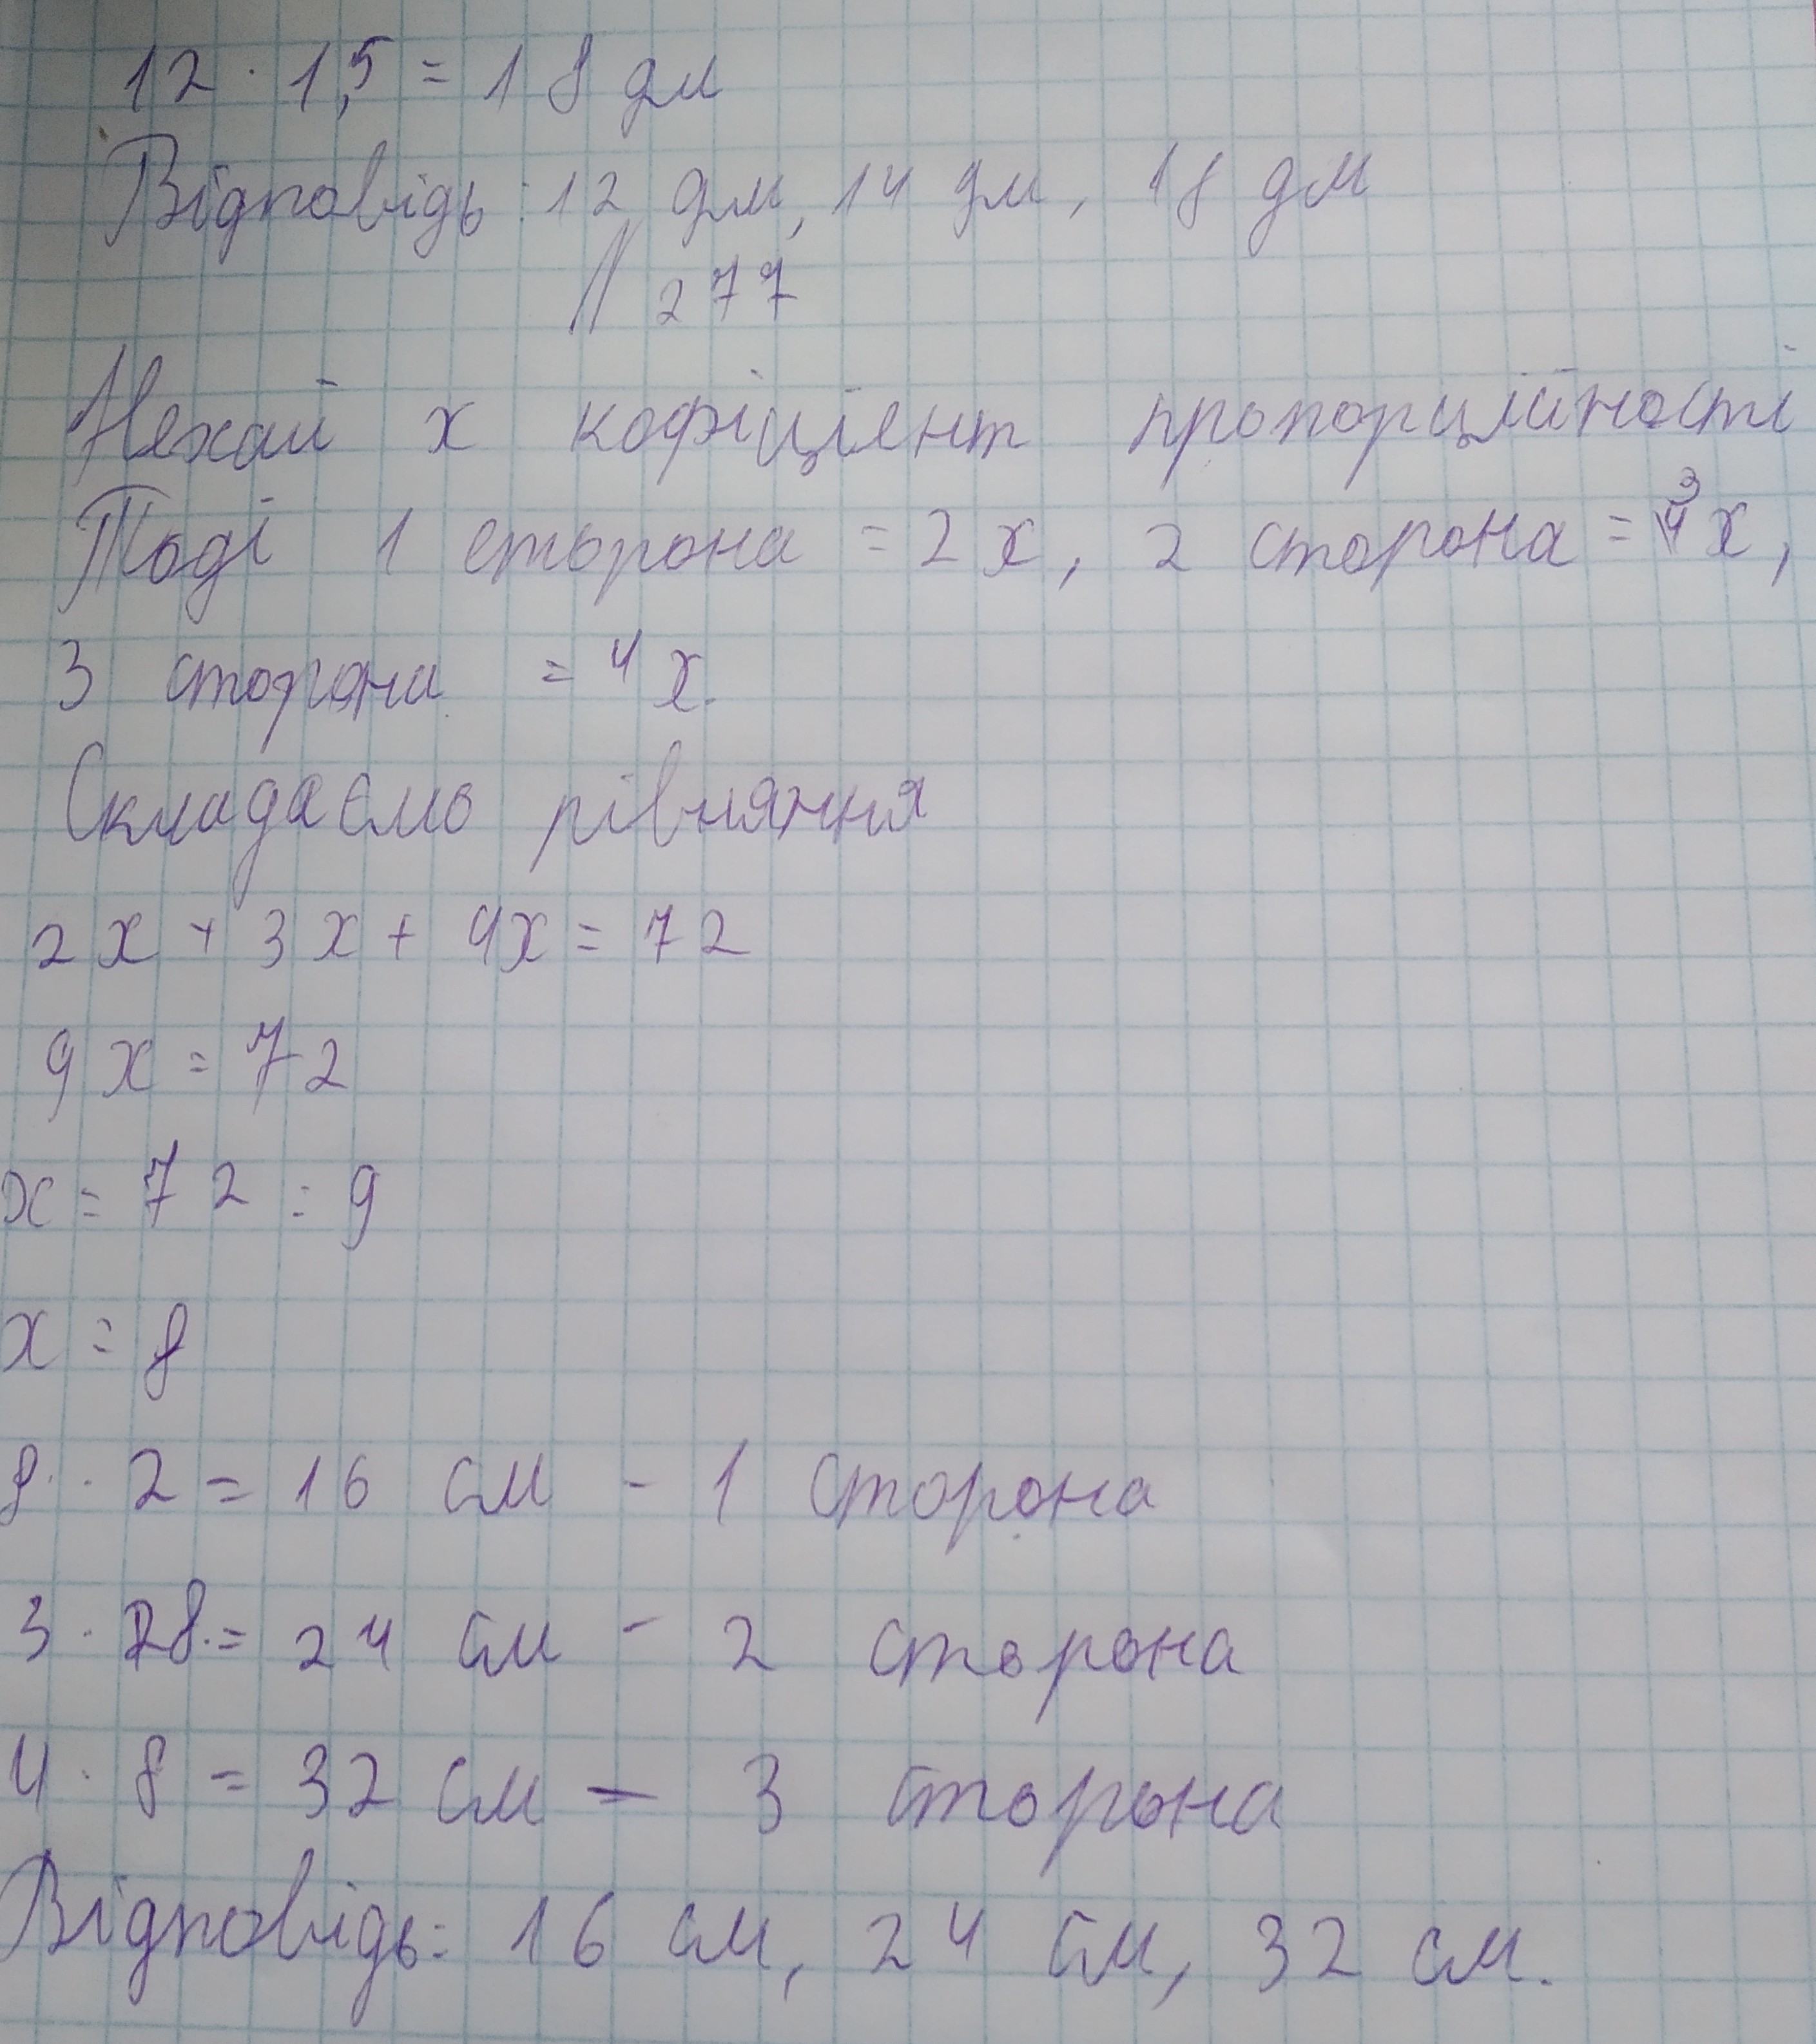 12 · 1,5 = 18 дм
Відповідь: 12 дм, 14 дм, 18 дм
№ 277
Нехай х кофіцієнт пропорційності
Тоді 1 сторона = 2х, 2 сторона = 3х,
3 сторона = 4х.
Складаємо рівняння
2х + 3х + 4х = 72
9х = 72
х = 72 : 9
х = 8
8 · 2 = 16 см - 1 сторона
3 · 8 = 24 см - 2 сторона
4 · 8 = 32 см - 3 сторона
Відповідь: 16 см, 24 см, 32 см.